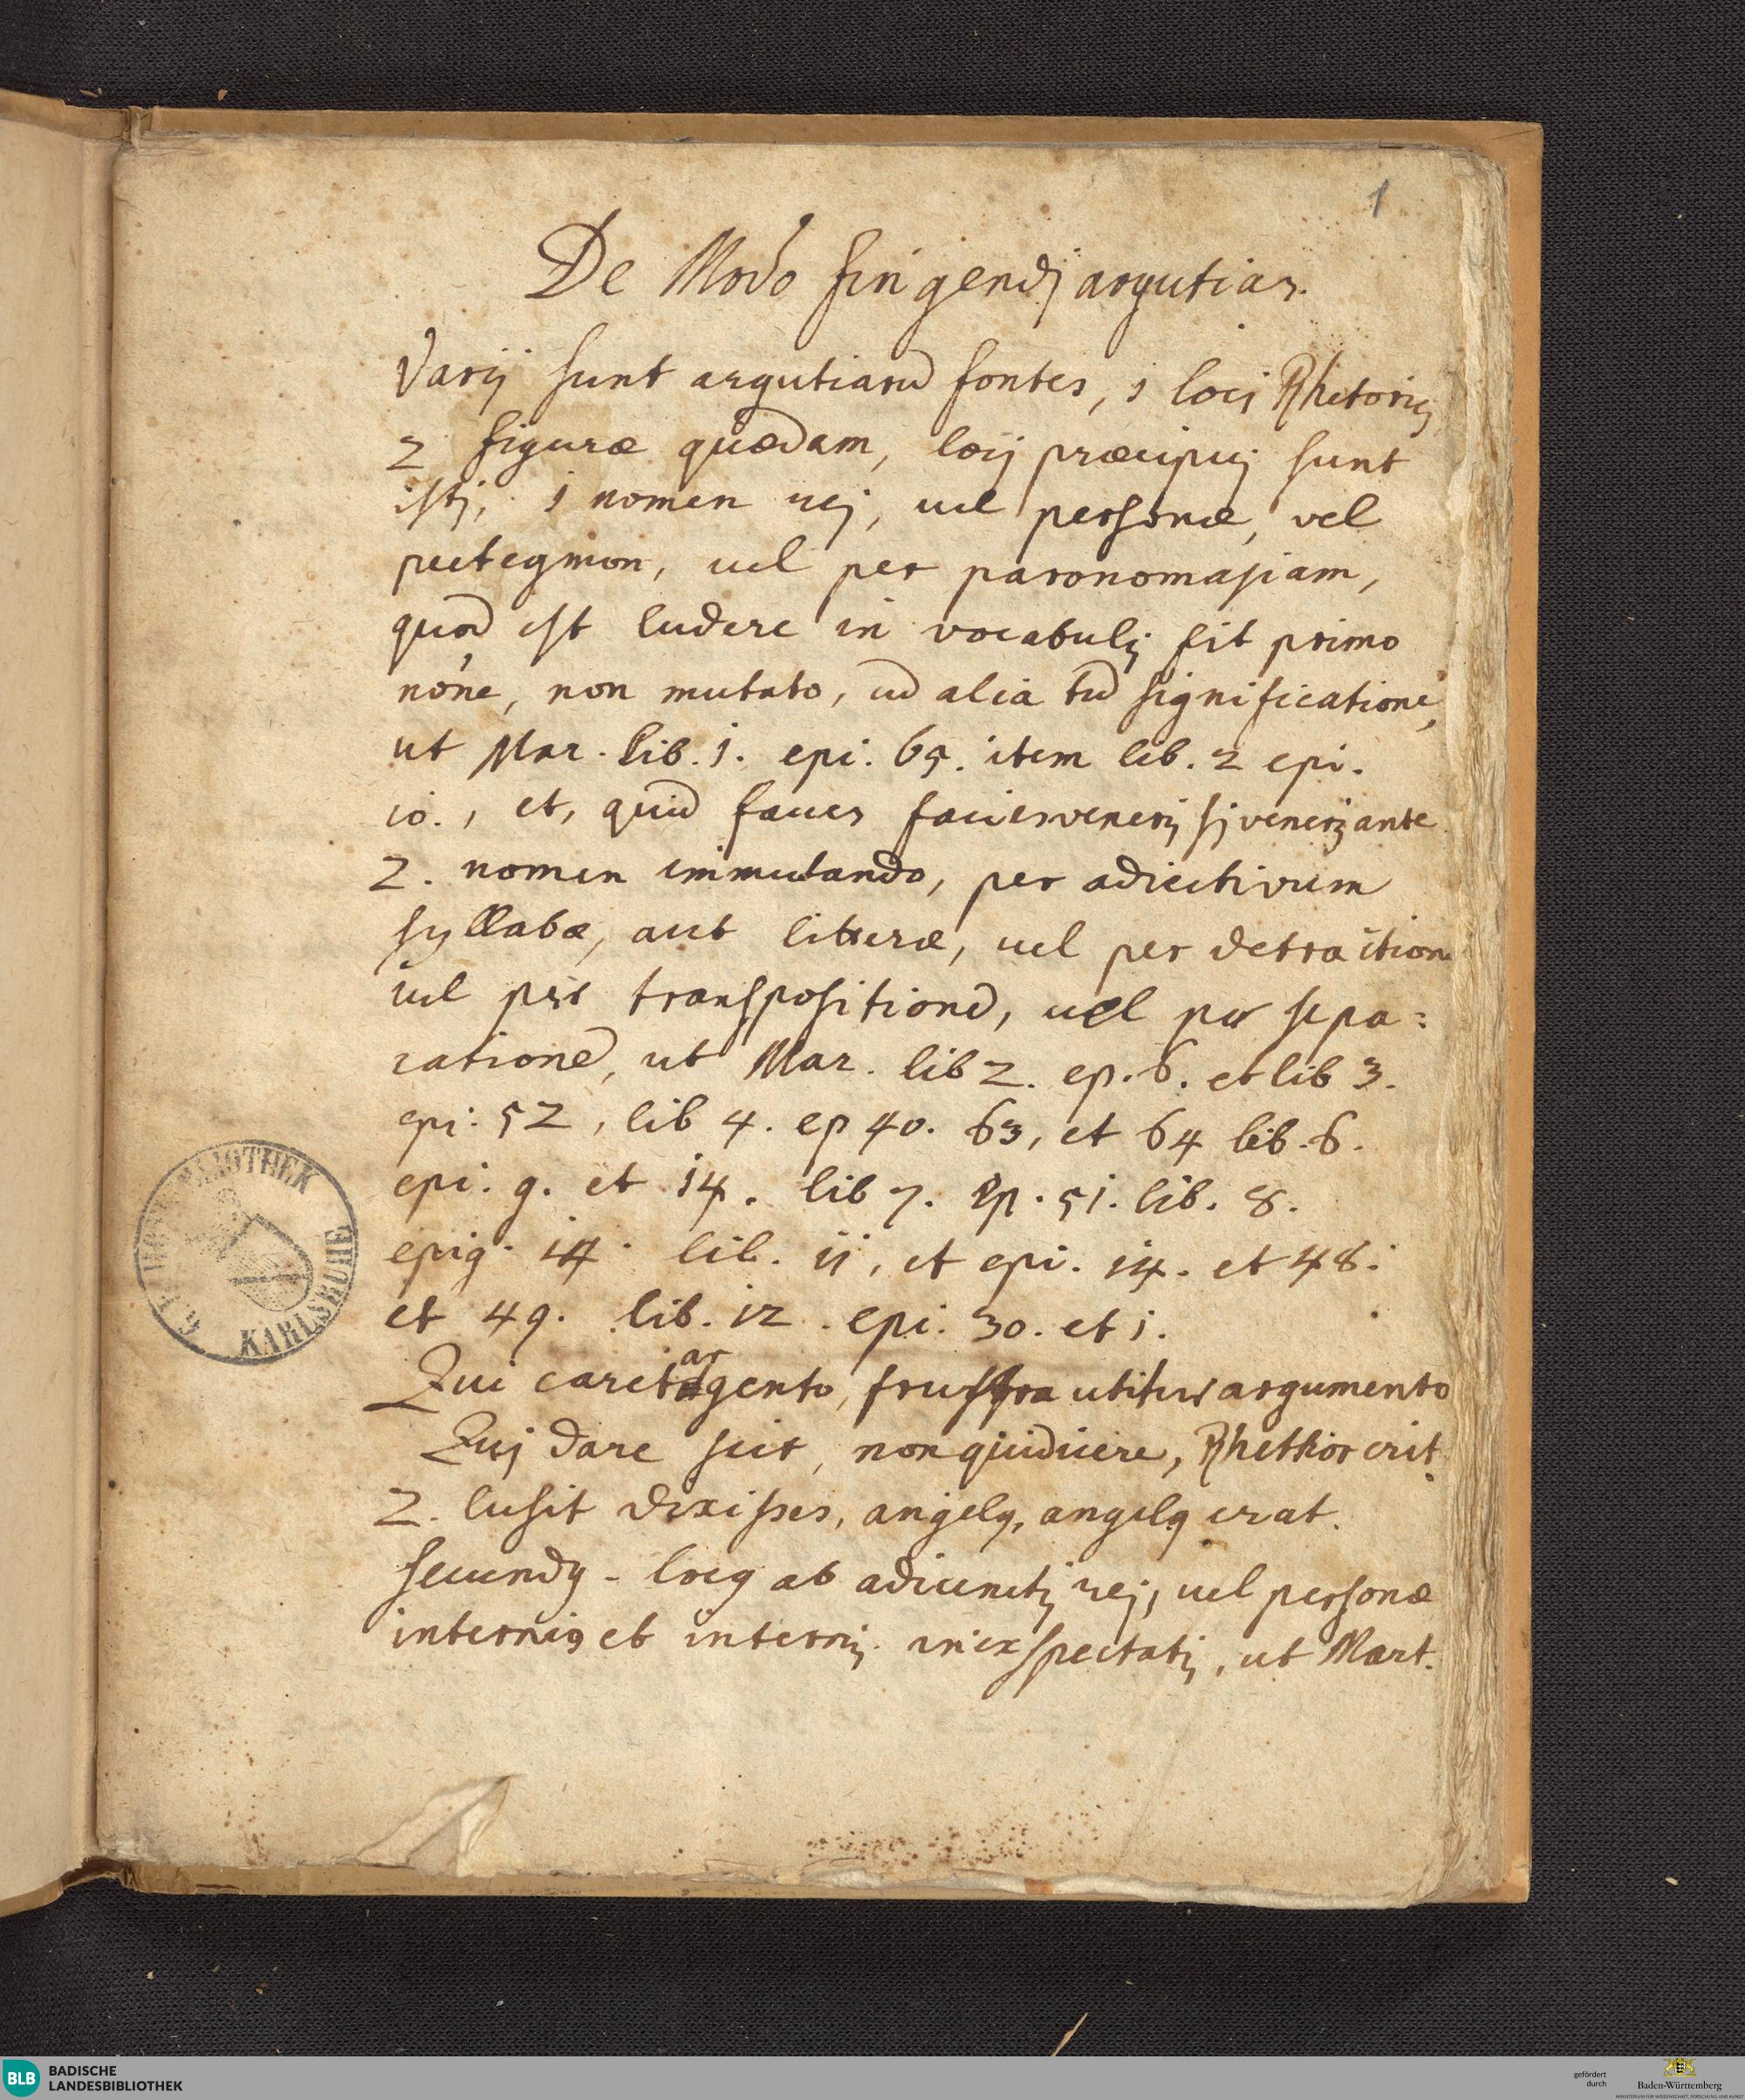 1
De Modo fingendj argutias.
Varij sunt argutiarū fontes, 1 locj Rhetoricj
2 figuræ quædam, locij præcipuj sunt
istj, 1 nomen rej, vel personæ, vel
vel per paronomasiam,
quod est ludere in vocabulis fit primo
nōne, non mutato, alia significatione,
ut Mar. lib. 1. epi. 65. item lib. 2 epi.
10., et, quid faues Veneris si veneris ante
2. nomen immutando, per adiectivum
syllabæ, aut litteræ, uel per detraction
uel per transpositionē, uel per sepa:
rationē, ut Mar. lib 2. ep. 6. et lib 3.
epi: 52, lib 4. ep 40. 63, et 64 lib. 6.
epi. 9. et 14. lib 7. Ep. 51. lib. 8.
epig. 14. lib. 11, et epi. 14. et 48.
et 49. lib. 12. epi. 30. et 1.
Qui caret argento, frustra utitur argumento
Quj dare scit, non quid dicere, Rhethor erit.
2. lusit dixisses, angelus, angelus erat.
secundus locus ab adiunctis rej, uel personæ
internis et internis inexspectatis, ut Mart.
BIBLIOTHEK
KARLSRUHE
BLB BADISCHE
LANDESBIBLIOTHEK
gefördert
durch
Baden-Württemberg
MINISTERIUM FÜR WISSENSCHAFT, FORSCHUNG UND KUNST